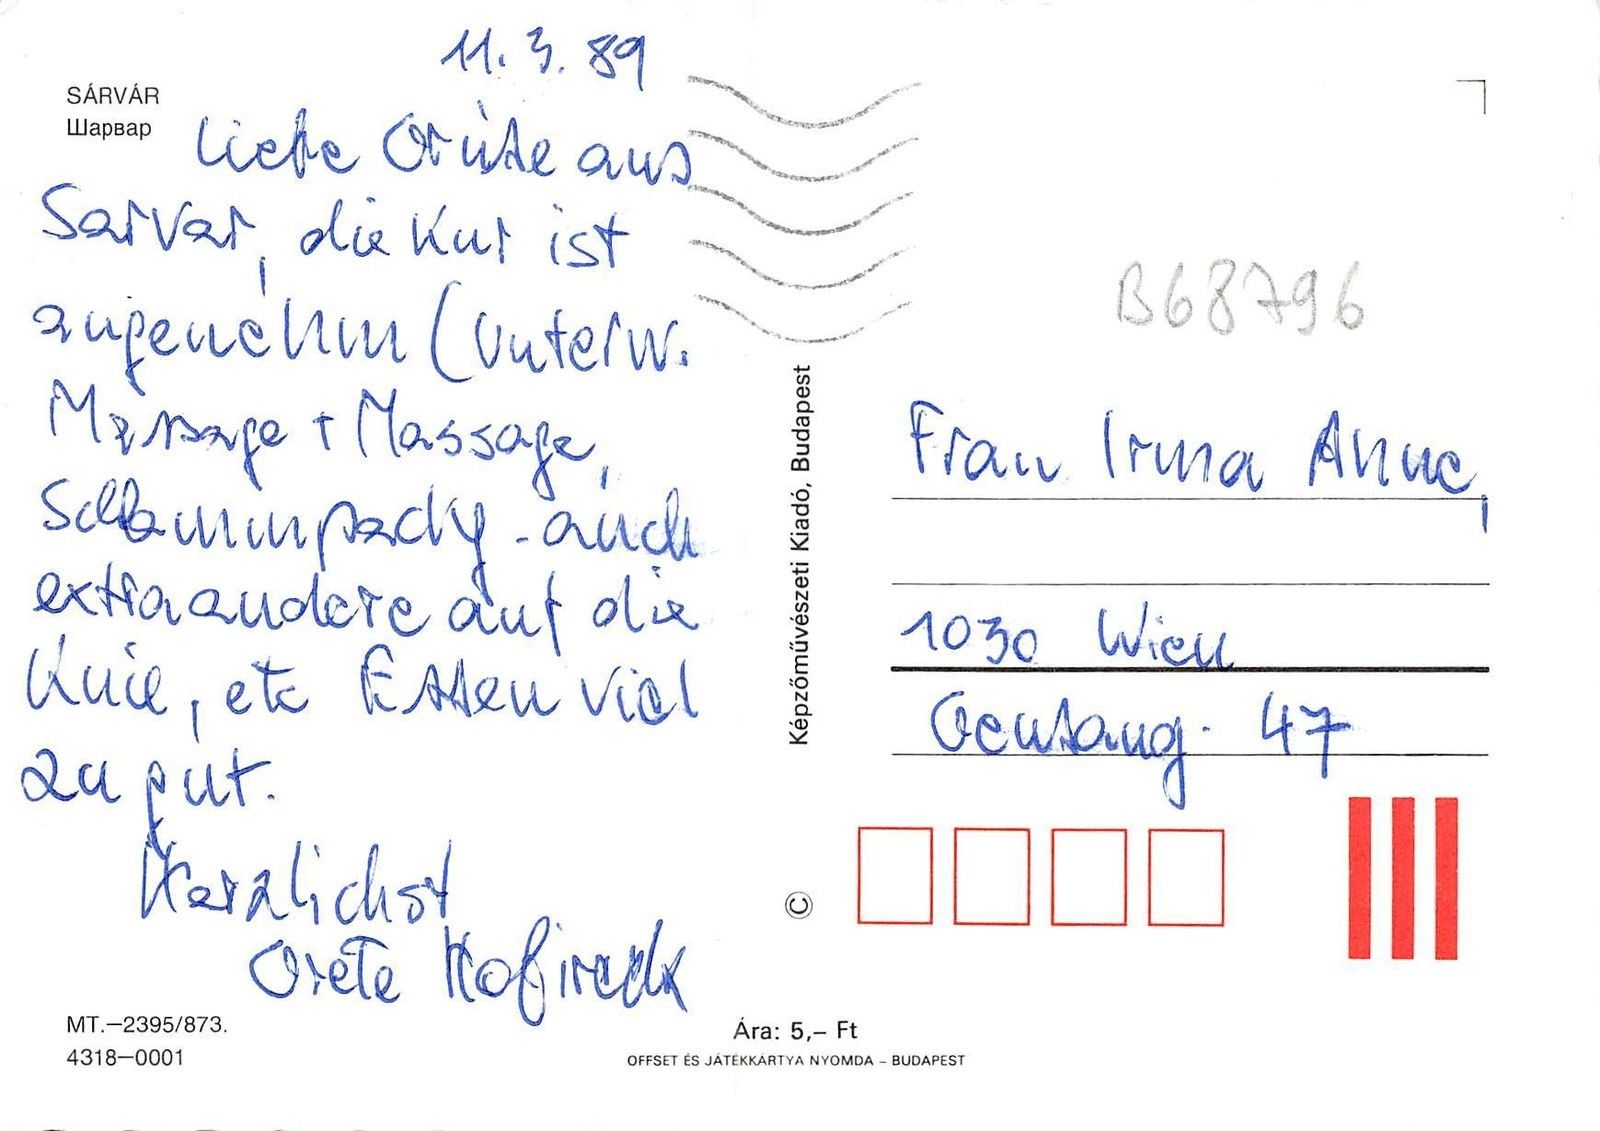 11. 3. 89
SÁRVÁR
Шарвар
Liebe Grüße aus
Sarvar, die Kur ist
angenehm (Unterw.
Massage + Massage,
auch
extra andere auf die
Knie, etc Essen viel
zu gut.
Herzlichst
Grete
MT.–2395/873.
4318–0001
Ára: 5,– Ft
OFFSET ÉS JÁTÉKKÁRTYA NYOMDA – BUDAPEST
Képzőművészeti Kiadó, Budapest
©
B68796
Frau Irma Anne,
1030 Wien
47